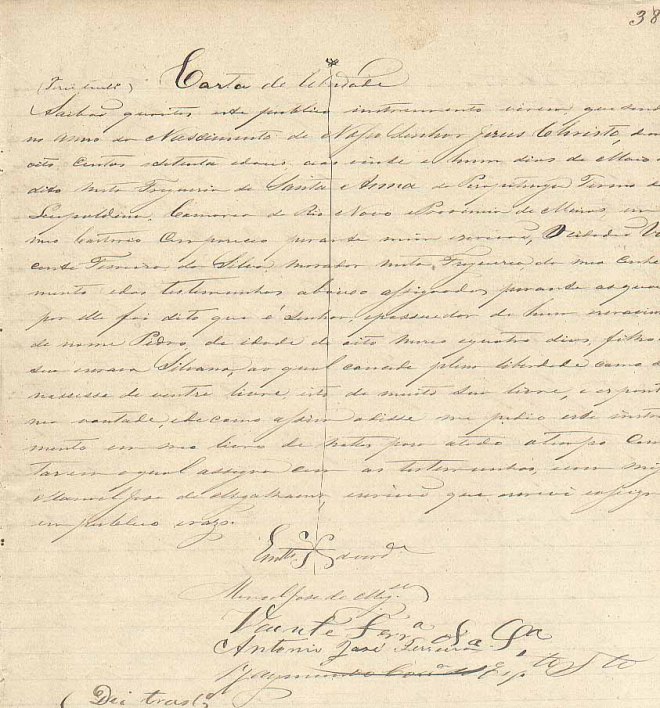 38
Carta de liberdade
Saibão quantos este publico instrumento virem que sendo
no Anno do Nascimento de Nosso Senhor Jesus Christo, de mil
oito centos setenta e dous, aos vinte e hum dias de Maio
dito nesta Freguesia de Santa Anna do Pirapitinga Termo da
Leopoldina, Comarca do Rio Novo Provincia de Minas, em
meo Cartorio compareceo perante mim escrivão, O cidadão Vi
cente Ferreira da Silva morador nesta Freguesia do meo conhe
cimento e das testemunhas abaixo assignadas, perante as quaes
por elle foi dito que é Senhor e possuidor de hum escravinho
de nome Pedro, de idade de oito meses e quatro dias, filho de
sua escrava Silvana, ao qual concede plena liberdade como se
nascesse de ventre livre, isto de muito sua livre, e espontanea
vontade, e de como assim o disse me pedio este instru
mento em meo livro de Notas para a todo a tempo cons
tarem o qual assigna com as testemunhas, comigo
Manoel José de Magalhaens, escrivão que escrevi e assigno
em publico e raso.
Em de verde
Manoel José de Mag.es
Vicente Ferra da Sa
Antonio José Ferreira